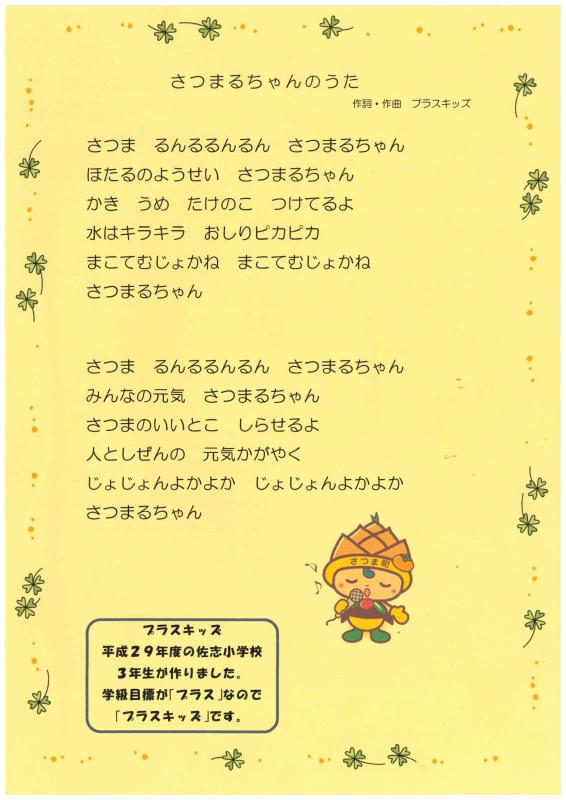 さつまるちゃんのうた
作詞・作曲　プラスキッズ
さつま　るんるるんるん　さつまるちゃん
ほたるのようせい　さつまるちゃん
かき　うめ　たけのこ　つけてるよ
水はキラキラ　おしりピカピカ
まこてむじょかね　まこてむじょかね
さつまるちゃん
さつま　るんるるんるん　さつまるちゃん
みんなの元気　さつまるちゃん
さつまのいいとこ　しらせるよ
人としぜんの　元気かがやく
じょじょんよかよか　じょじょんよかよか
さつまるちゃん
さつま町
プラスキッズ
平成２９年度の佐志小学校
３年生が作りました。
学級目標が「プラス」なので
「プラスキッズ」です。